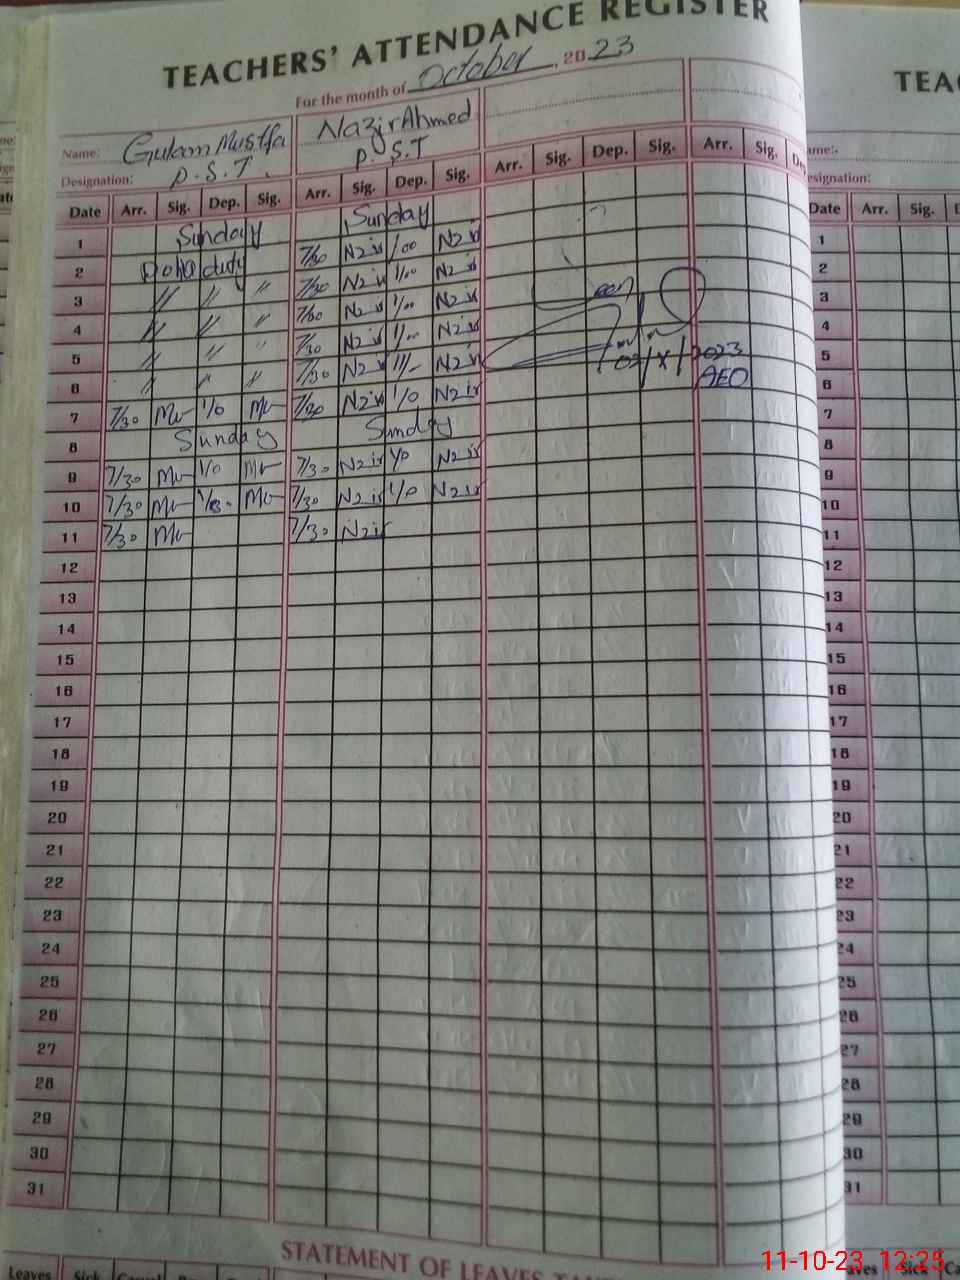 TEACHERS' ATTENDANCE REGISTER
For the month of October, 2023
Name: Gulam Mustfa Nazir Ahmed
Designation: P.S.T. P.S.T
Date Arr. Sig. Dep. Sig. Arr. Sig. Dep. Sig. Arr. Sig. Dep. Sig. Arr. Sig. De
1 Sunday Sunday
2 duty 7/30 Nzir 1/00 Nzir
3 〃 〃 〃 7/30 Nzir 1/00 Nzir
4 〃 〃 〃 7/30 Nzir 1/00 Nzir Seen
5 〃 〃 〃 7/30 Nzir 1/00 Nzir
6 〃 〃 〃 7/30 Nzir Nzir 02/X/2023
AEO
7 7/30 1/0 7/30 Nzir 1/0 Nzir
8 Sunday Sunday
9 7/30 1/0 7/30 Nzir 1/0 Nzir
10 7/30 7/30 Nzir 1/0 Nzir
11 7/30 7/30 Nzir
12
13
14
15
16
17
18
19
20
21
22
23
24
25
26
27
28
29
30
31
STATEMENT OF LEAVES TA
Leaves Sick
TEA
ame:
esignation:
Date Arr. Sig. D
1
2
3
4
5
6
7
8
9
10
11
12
13
14
15
16
17
18
19
20
21
22
23
24
25
26
27
28
29
30
31
aves Sick Ca
11-10-23 12:25